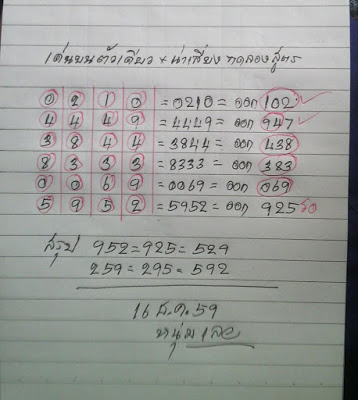 เด่นบนตัวเดียว + น่าเสี่ยง ทดลองสูตร
0 2 1 0 = 0210 = ออก 102 ✓
4 4 4 9 = 4449 = ออก 947 ✓
3 8 4 4 = 3844 = ออก 438
8 3 3 3 = 8333 = ออก 383
0 0 6 9 = 0069 = ออก 069
5 9 5 2 = 5952 = ออก 925 รอ
สรุป 952 = 925 = 529
259 = 295 = 592
16 ธ.ค. 59
หนุ่ม เลย